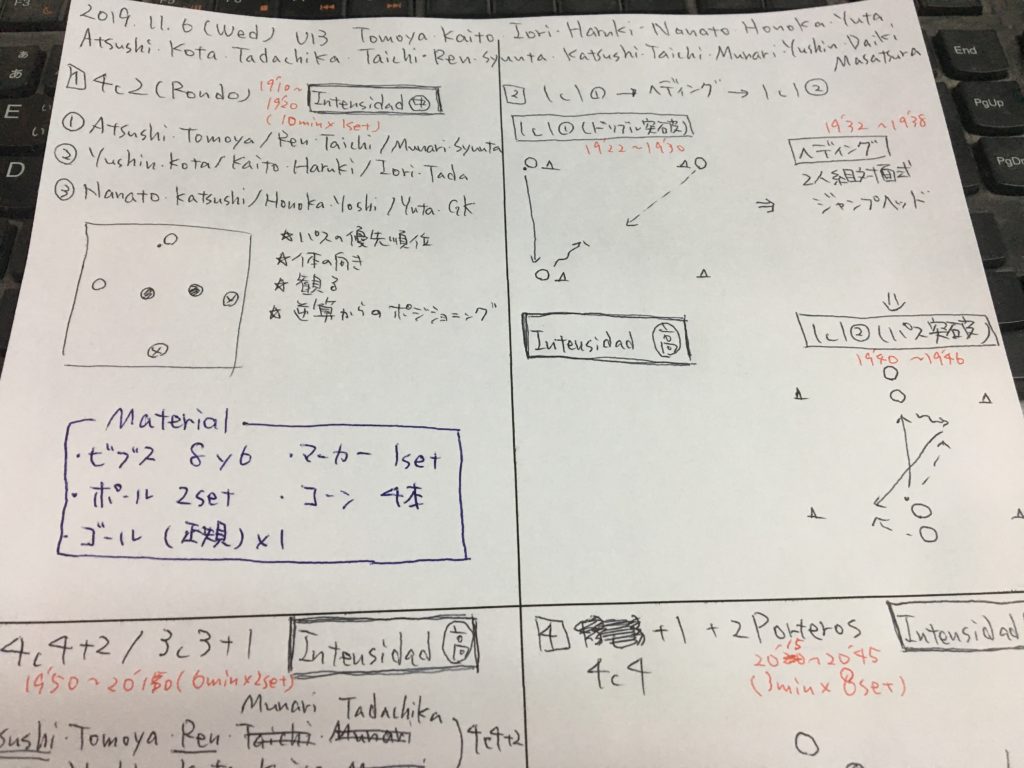 2019. 11. 6 (Wed) U13 Tomoya・Kaito・Iori・Haruki・Nanato・Honoka・Yuta・
Atsushi・Kota・Tadachika・Taichi・Ren・Syunta・Katsushi・Taichi・Munari・Yushin・Daiki
Masatsura
1 4c2 (Rondo)
19'10~
19'20
(10min×1set)
Intensidad 中
① Atsushi・Tomoya/Ren・Taichi/Munari・Syunta
② Yushin・Kota/Kaito・Haruki/Iori・Tada
③ Nanato・Katsushi/Honoka・Yoshi/Yuta・GK
☆パスの優先順位
☆体の向き
☆観る
☆逆算からのポジショニング
Material
・ビブス 8y6 ・マーカー 1set
・ボール 2set ・コーン 4本
・ゴール (正規)×1
2 1c1① → ヘディング → 1c1②
1c1①(ドリブル突破)
19'22~19'30
19'32~19'38
ヘディング
2人組対面式
⇒ ジャンプヘッド
Intensidad 高
1c1②(パス突破)
19'40~19'46
4c4+2 / 3c3+1
Intensidad 高
(6min×2set)
Munari Tadachika
sushi・Tomoya・Ren・Taichi・Munari
4c4+2
4 +1 +2Porteros
4c4
Intensidad
20'15~20'45
(3min×8set)